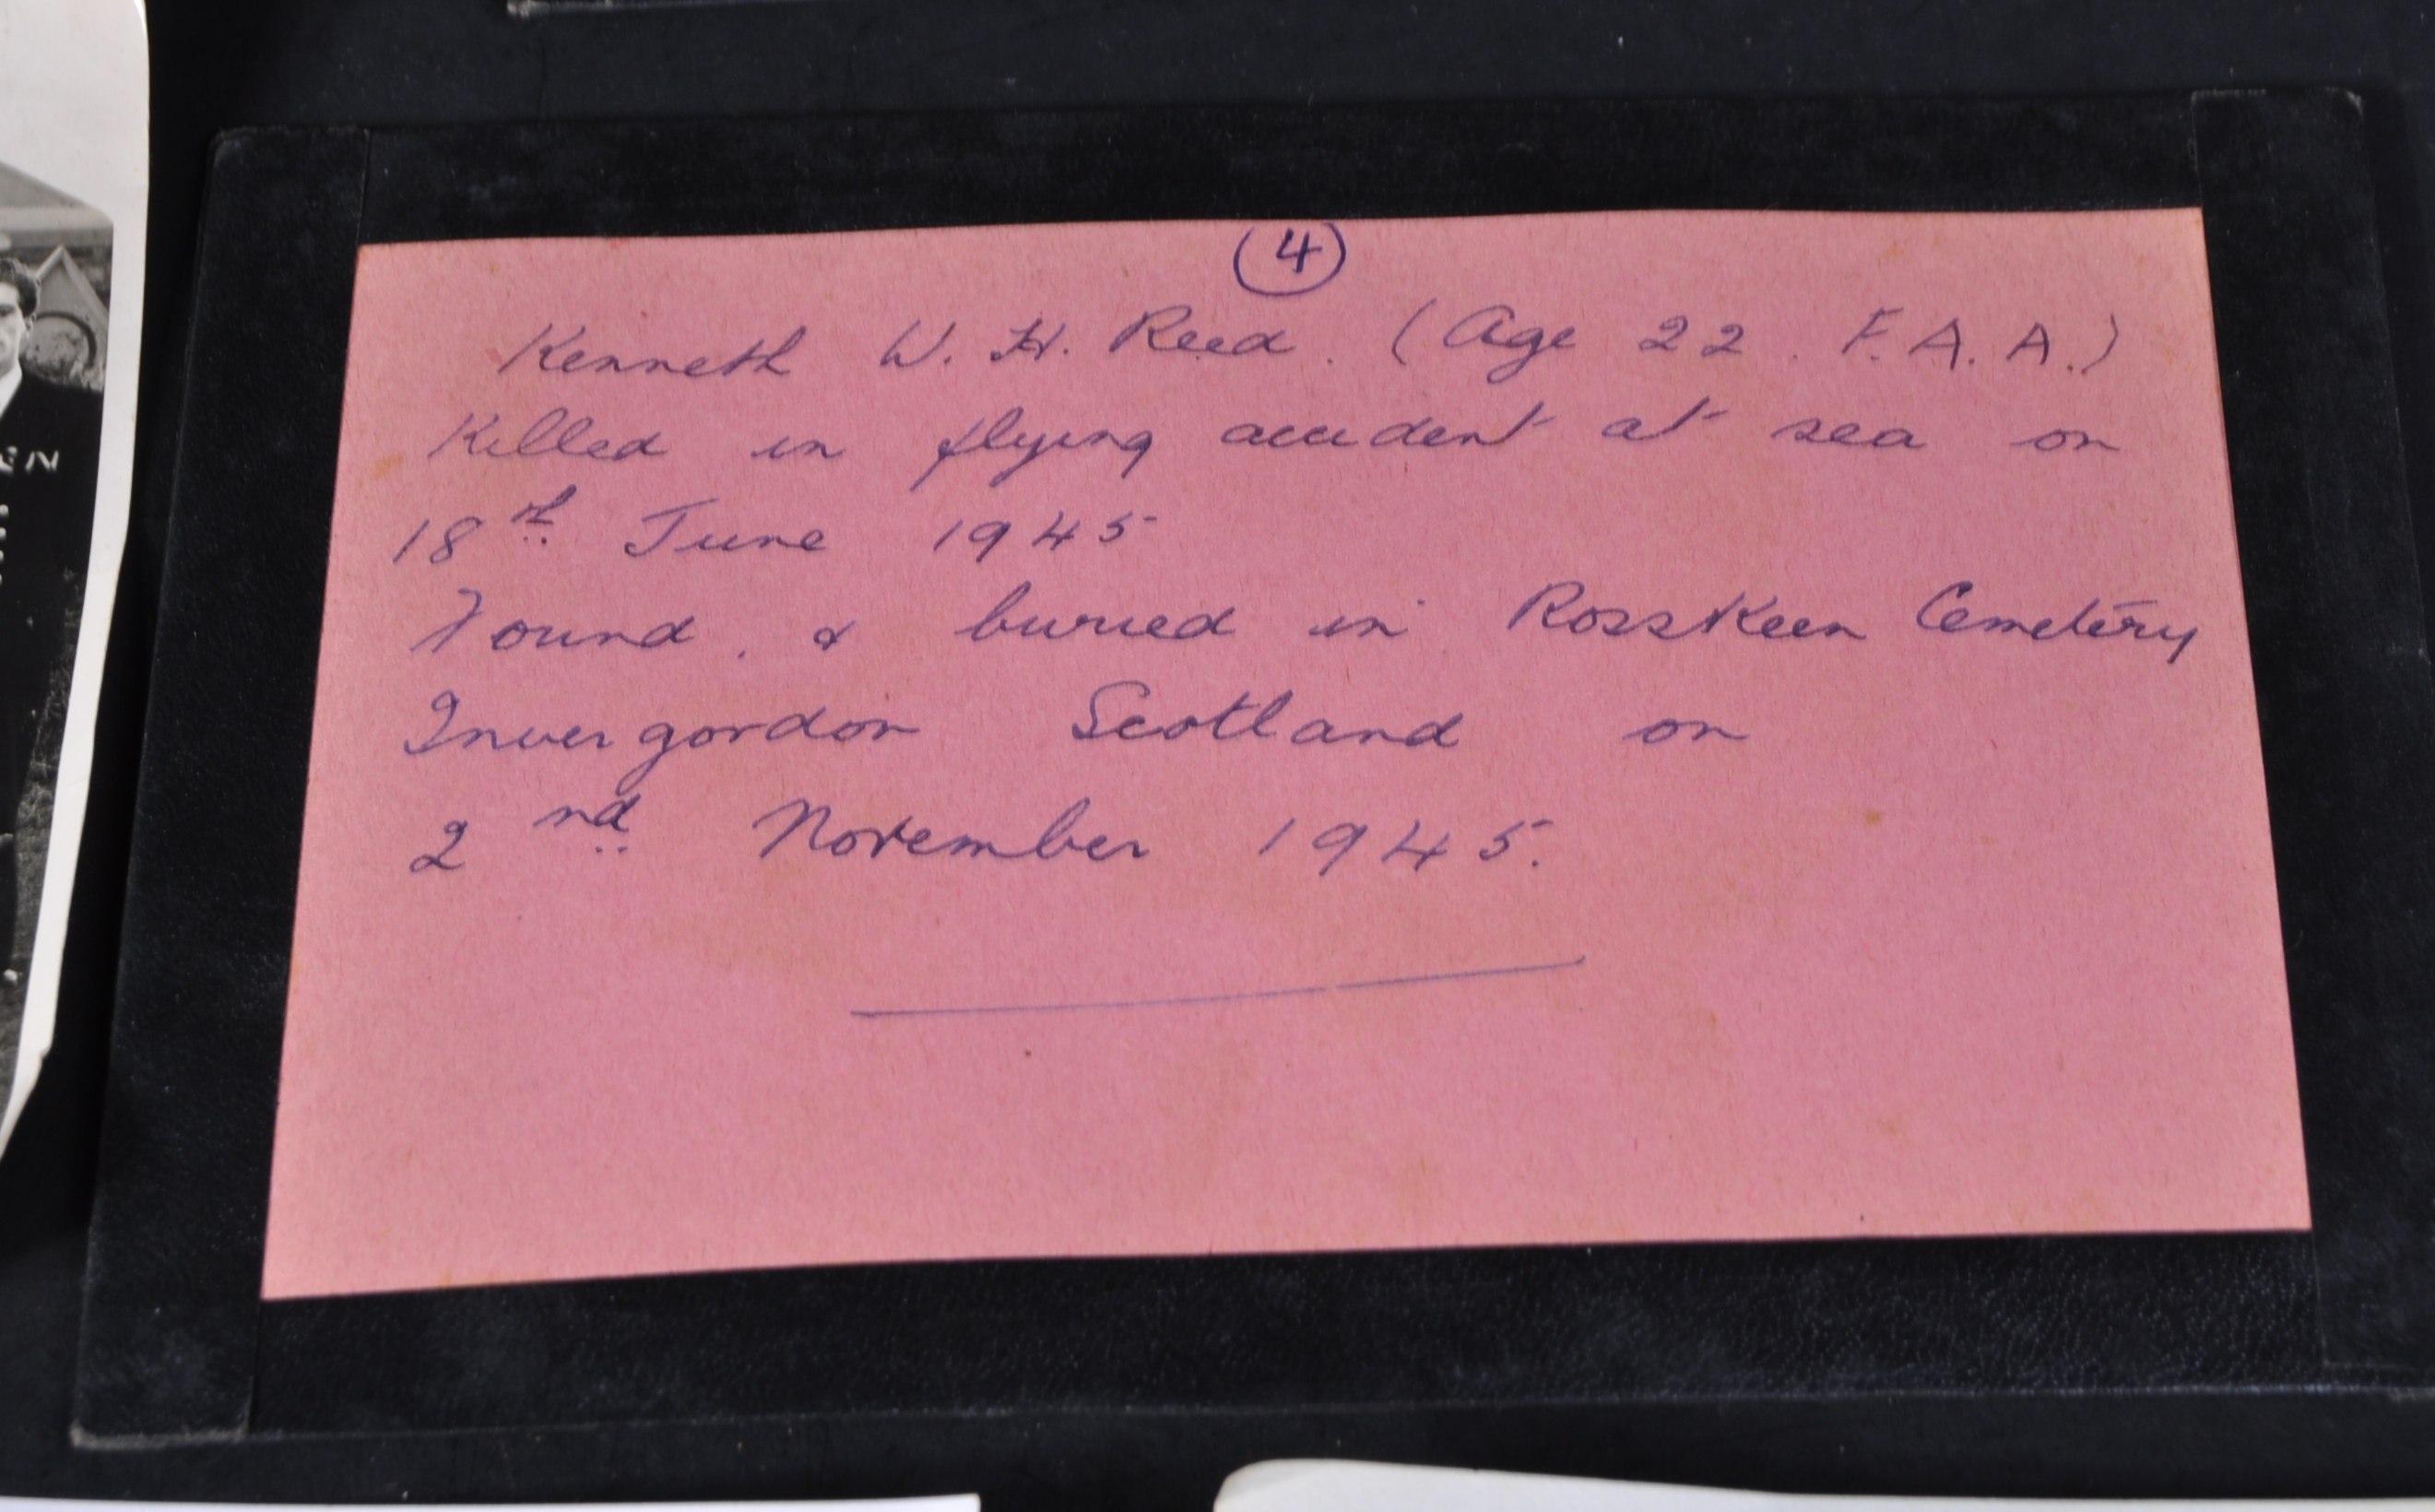 4
Kenneth W. H. Reed. (Age 22. F.A.A.)
Killed in flying accident at sea on
18th June 1945
Found. & buried in Rosskeen Cemetery
Invergordon Scotland on
2nd November 1945.
EN